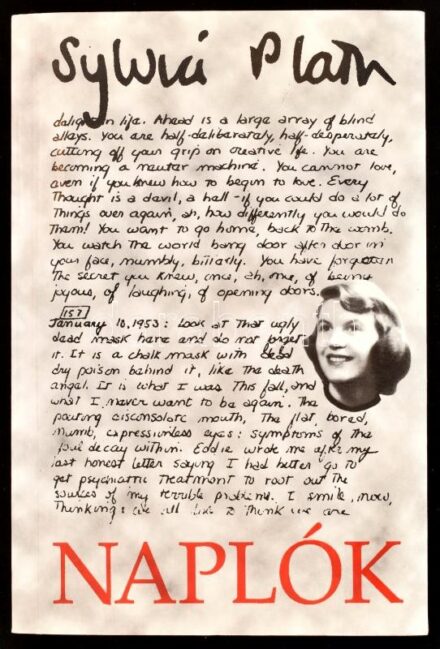 Sylvia Plath
delight in life. Ahead is a large array of blind
alleys. You are half-deliberately, half-desperately,
cutting off your grip on creative life. You are
becoming a neuter machine. You cannot love,
even if you knew how to begin to love. Every
Thought is a devil, a hell - if you could do a lot of
Things over again, ah, how differently you would do
Them! You want to go home, back to the womb.
You watch the world bang door after door in
your face, numbly, bitterly. You have forgotten
The secret you knew, once, ah, once, of being
joyous, of laughing, of opening doors.
157
January 10, 1953: Look at That ugly
dead mask here and do not forget
it. It is a chalk mask with dead
dry poison behind it, like the death
angel. It is what I was This fall, and
what I never want to be again. The
pouting disconsolate mouth, The flat, bored,
numb, expressionless eyes: symptoms of the
foul decay within. Eddie wrote me after my
last honest letter saying I had better go to
get psychiatric Treatment to root out the
sources of my terrible problems. I smile, now,
Thinking: we all like to think we are
NAPLÓK